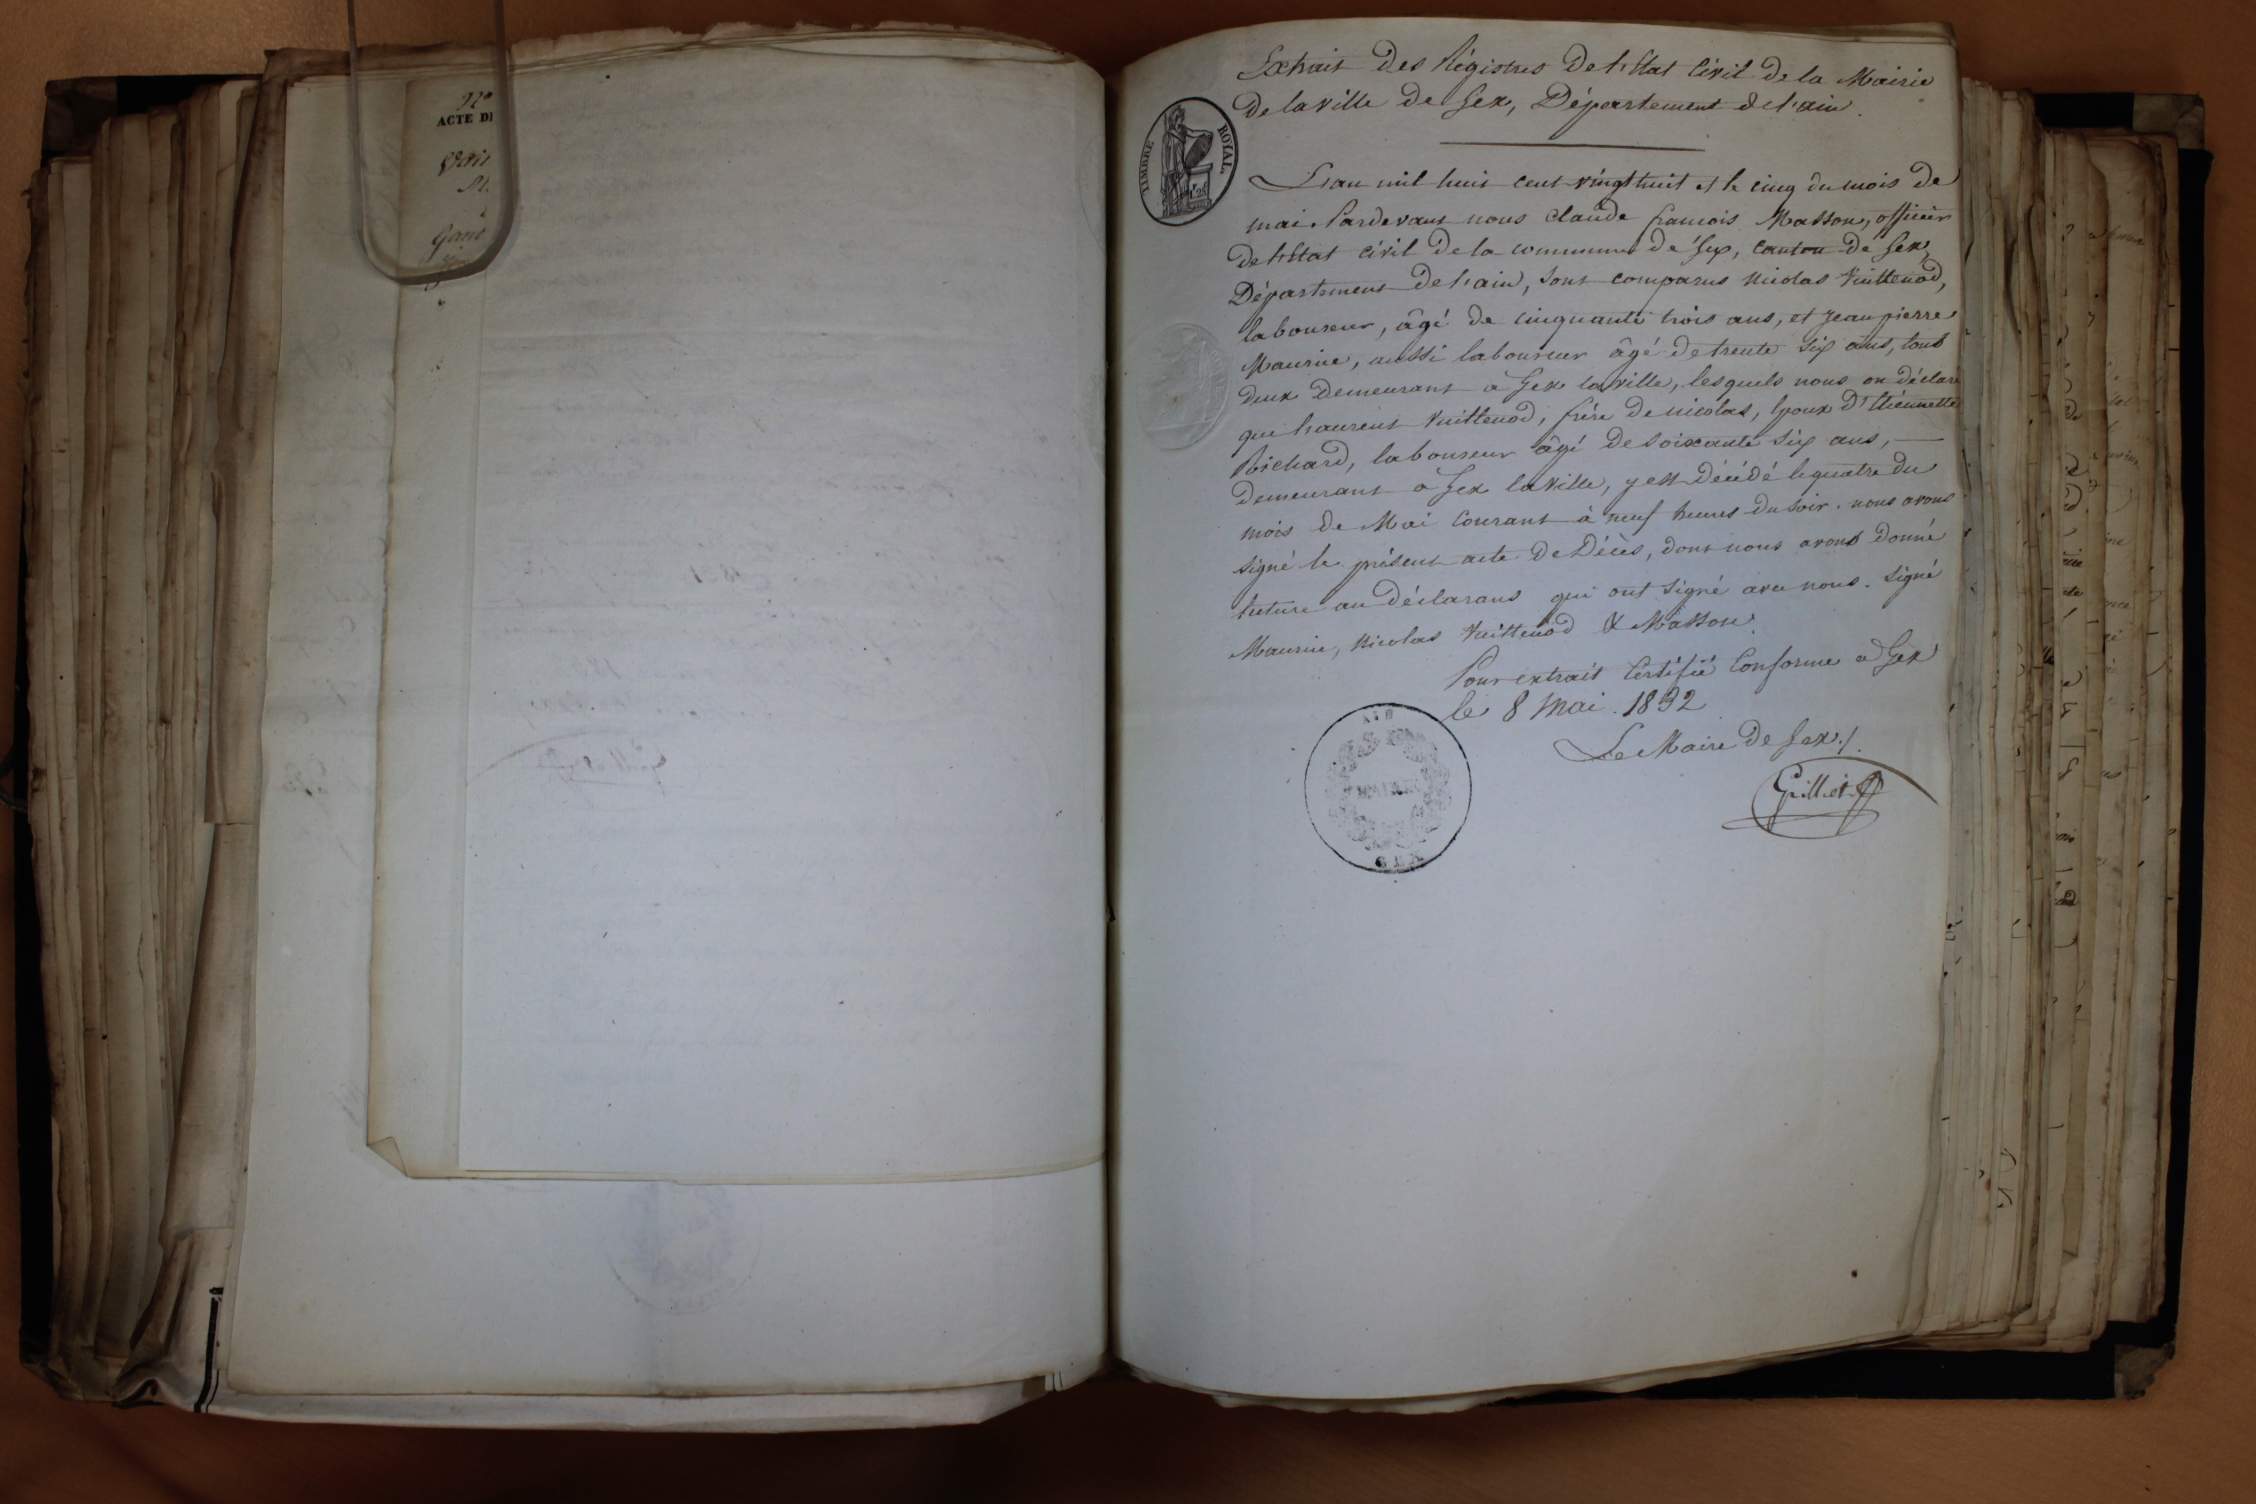 ACTE DE
Extrait Des Régistres De l'Etat Civil de la Mairie
De la ville De Gex, Département de l'ain.
TIMBRE ROYAL
L'an mil huit cent vingt huit et le cinq du mois de
mai. Pardevant nous Claude françois Masson, officier
De l'Etat civil De la commune de Gex, canton De Gex,
Département De l'ain, sont comparus Nicolas Vuittenod,
laboureur, âgé de cinquante trois ans, et Jean pierre
Maurice, aussi laboureur âgé de trente six ans, tous
deux Demeurant à Gex la ville, lesquels nous on déclaré
que Laurent Vuittenod, frère De nicolas, époux D'Etiennette
Poichard, laboureur âgé de soixante six ans,
demeurant à Gex la ville, y est Décédé le quatre du
mois de Mai Courant à neuf heures du soir. nous avons
signé le présent acte De Décès, dont nous avons donné
lecture au Déclarans qui ont signé avec nous. Signé
Maurice, Nicolas Vuittenod & Masson.
Pour extrait Certifié Conforme à Gex
le 8 Mai 1832
Le Maire De Gex./.
AIN
MAIRIE
GEX